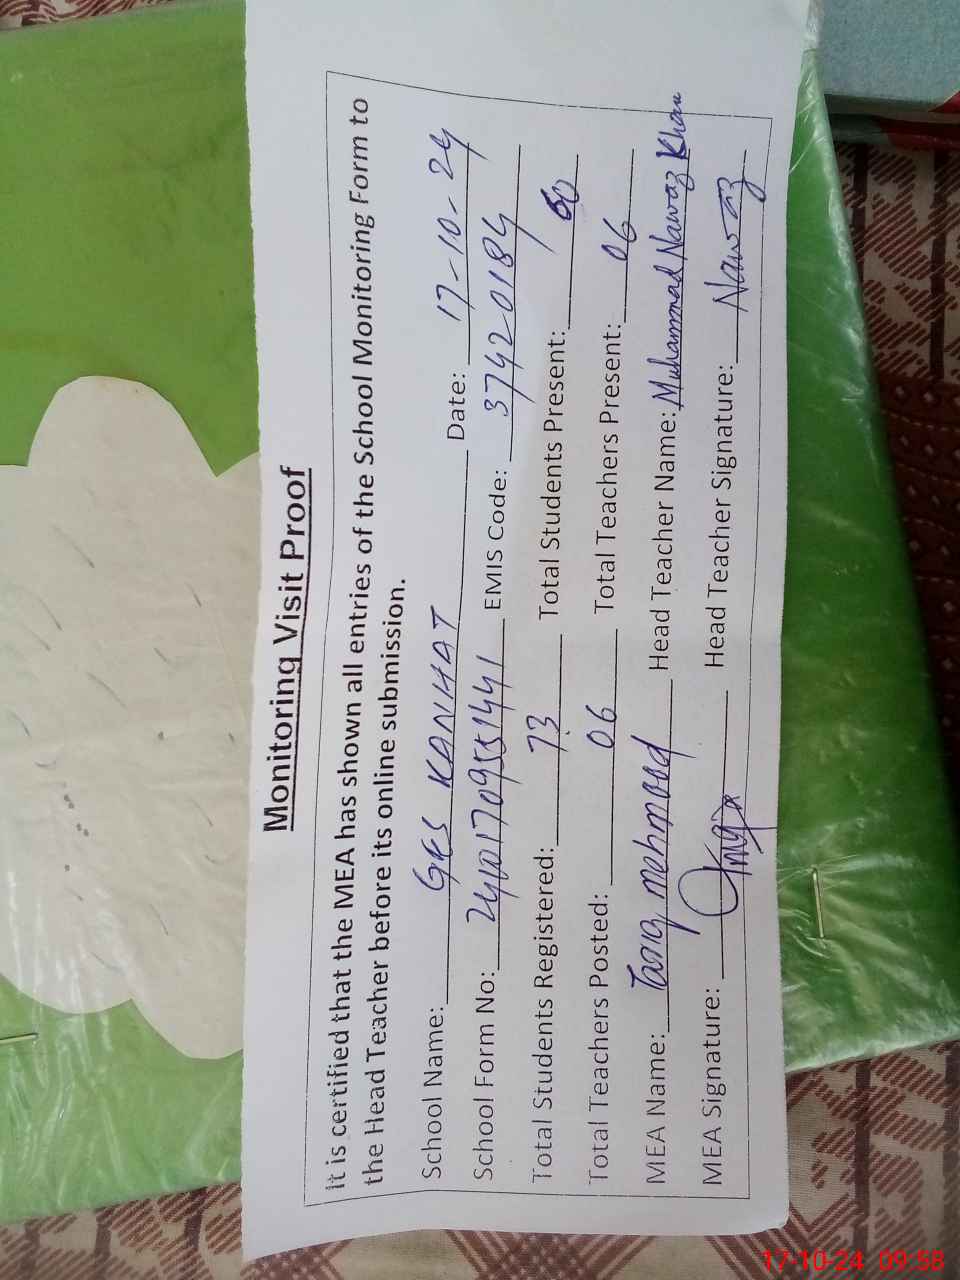 Monitoring Visit Proof
It is certified that the MEA has shown all entries of the School Monitoring Form to
the Head Teacher before its online submission.
School Name: GES KANHAT Date: 17-10-24
School Form No: 24101709551441 EMIS Code: 37420184
Total Students Registered: 73 Total Students Present: 60
Total Teachers Posted: 06 Total Teachers Present: 06
MEA Name: Tariq mehmood Head Teacher Name: Muhammad Nawaz Khan
MEA Signature: Head Teacher Signature: Nawaz
17-10-24 09:58